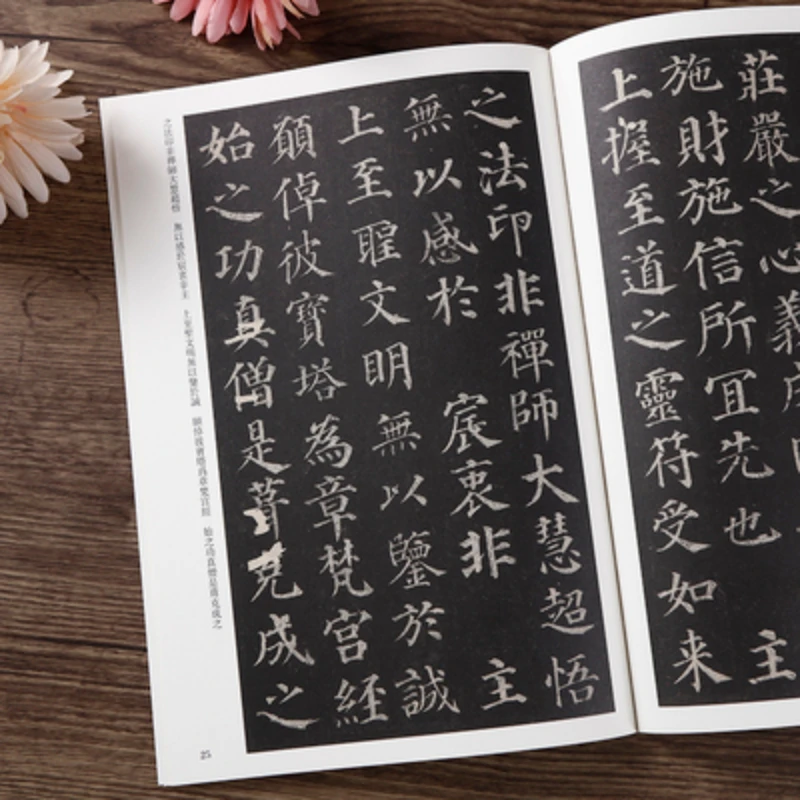 莊嚴之心
施財施信所冝先也 主
上握至道之靈符受如来
之法印非禪師大慧超悟
無以感於 宸衷非 主
上至聖文明無以鑒於誠
願倬彼寶塔為章梵宮經
始之功真僧是葺克成之
之法印非禪師大慧超悟 無以感於宸衷非主 上至聖文明無以鑒於誠 願倬彼寶塔爲章梵宮經 始之功真僧是葺克成之
25